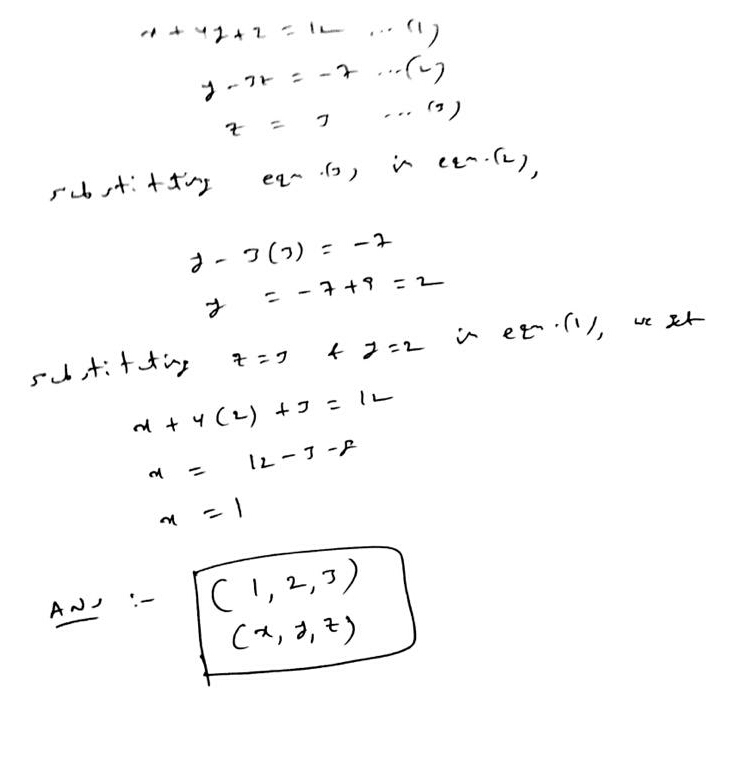 x + 4y + z = 12 ... (1)
y - 3z = -7 ... (2)
z = 3 ... (3)
substituting eqn.(3) in eqn.(2),
y - 3(3) = -7
y = -7+9 = 2
substituting z=3 & y=2 in eqn.(1), we get
x + 4(2) + 3 = 12
x = 12-3-8
x = 1
Ans :- (1, 2, 3)
(x, y, z)